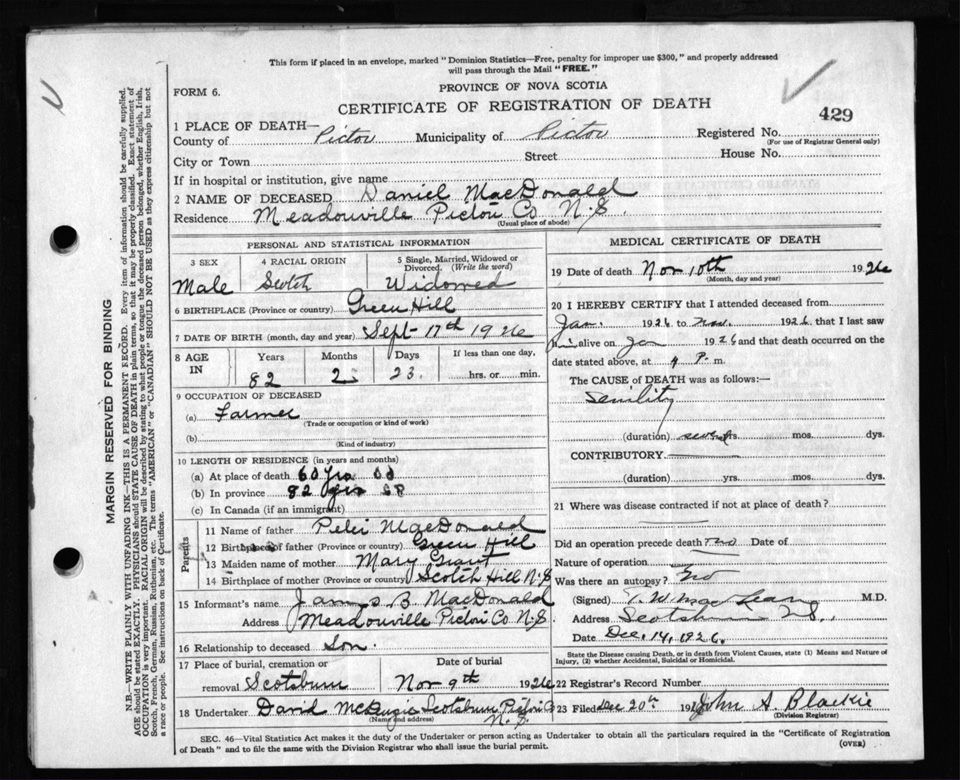 This form if placed in an envelope, marked "Dominion Statistics—Free, penalty for improper use $300," and properly addressed
will pass through the Mail "FREE."
FORM 6.
PROVINCE OF NOVA SCOTIA
CERTIFICATE OF REGISTRATION OF DEATH
429
1 PLACE OF DEATH—
County of Pictou Municipality of Pictou Registered No.
(For use of Registrar General only)
City or Town Street House No.
If in hospital or institution, give name
2 NAME OF DECEASED Daniel MacDonald
Residence Meadouville Pictou Co N.S.
(Usual place of abode)
PERSONAL AND STATISTICAL INFORMATION
3 SEX 4 RACIAL ORIGIN 5 Single, Married, Widowed or Divorced. (Write the word)
Male Scotch Widowed
6 BIRTHPLACE (Province or country) Green Hill
7 DATE OF BIRTH (month, day and year) Sept 17th 1926
8 AGE IN Years Months Days If less than one day,
82 2 23 hrs. or min.
9 OCCUPATION OF DECEASED
(a) Farmer
(Trade or occupation or kind of work)
(b)
(Kind of industry)
10 LENGTH OF RESIDENCE (in years and months)
(a) At place of death 60 yrs
(b) In province 82 yrs
(c) In Canada (if an immigrant)
Parents
11 Name of father Peter MacDonald
12 Birthplace of father (Province or country) Green Hill
13 Maiden name of mother Mary Grant
14 Birthplace of mother (Province or country) Scotch Hill N.S
15 Informant's name James B. MacDonald
Address Meadouville Pictou Co N.S.
16 Relationship to deceased Son.
17 Place of burial, cremation or Date of burial
removal Scotsburn Nov 9th 1926
18 Undertaker David Scotsburn Pictou Co
(Name and address) N.S.
MEDICAL CERTIFICATE OF DEATH
19 Date of death Nov 10th 1926
(Month, day and year)
20 I HEREBY CERTIFY that I attended deceased from
Jan. 1926 to Nov. 1926 that I last saw
him alive on Jan 1926 and that death occurred on the
date stated above, at P. m.
The CAUSE of DEATH was as follows:—
Senility
(duration) yrs. mos. dys.
CONTRIBUTORY
(duration) yrs. mos. dys.
21 Where was disease contracted if not at place of death?
Did an operation precede death? no Date of
Nature of operation
Was there an autopsy? no
(Signed) MacLean M.D.
Address Scotsburn N.S.
Date Dec. 14, 1926.
State the Disease causing Death, or in death from Violent Causes, state (1) Means and Nature of
Injury, (2) whether Accidental, Suicidal or Homicidal.
22 Registrar's Record Number
23 Filed Dec 20th 192 John A. Blackie
(Division Registrar)
SEC. 46—Vital Statistics Act makes it the duty of the Undertaker or person acting as Undertaker to obtain all the particulars required in the "Certificate of Registration
of Death" and to file the same with the Division Registrar who shall issue the burial permit.
(OVER)
MARGIN RESERVED FOR BINDING
N.B.—WRITE PLAINLY WITH UNFADING INK—THIS IS A PERMANENT RECORD. Every item of information should be carefully supplied.
AGE should be stated EXACTLY. PHYSICIANS should STATE CAUSE OF DEATH in plain terms, so that it may be properly classified. Exact statement of
OCCUPATION is very important. RACIAL ORIGIN will be described by stating to what people or tongue the deceased person belonged, whether English, Irish,
Scotch, French, German, Russian, Ruthenian, etc. The terms "AMERICAN" or "CANADIAN" SHOULD NOT BE USED as they express citizenship but not
a race or people. See instructions on back of Certificate.